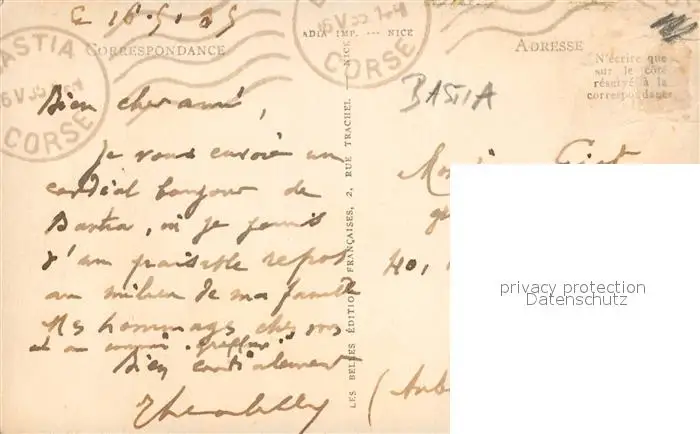 BASTIA
16 V 35
CORSE
CORRESPONDANCE
ADIA IMP. --- NICE
ADRESSE
N'écrire que
sur le côté
réservé à la
correspondance
BASTIA
LES BELLES ÉDITIONS FRANÇAISES, 2, RUE TRACHEL — NICE
le 16.5.35
Bien cher ami,
Je vous envoie un
cordial bonjour de
Bastia, où je jouis
d'un paisible repos
au milieu de ma famille
Mes hommages chez vous
et au
Bien cordialement
40,
privacy protection
Datenschutz